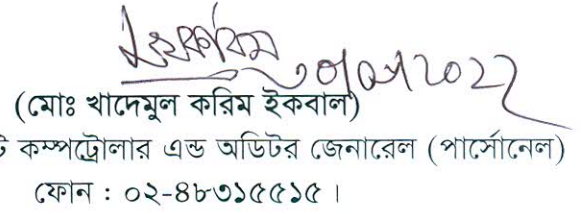 (মোঃ খাদেমুল করিম ইকবাল)
কম্পট্রোলার এন্ড অডিটর জেনারেল (পার্সোনেল)
ফোন : ০২-৪৮৩১৫৫১৫ ।